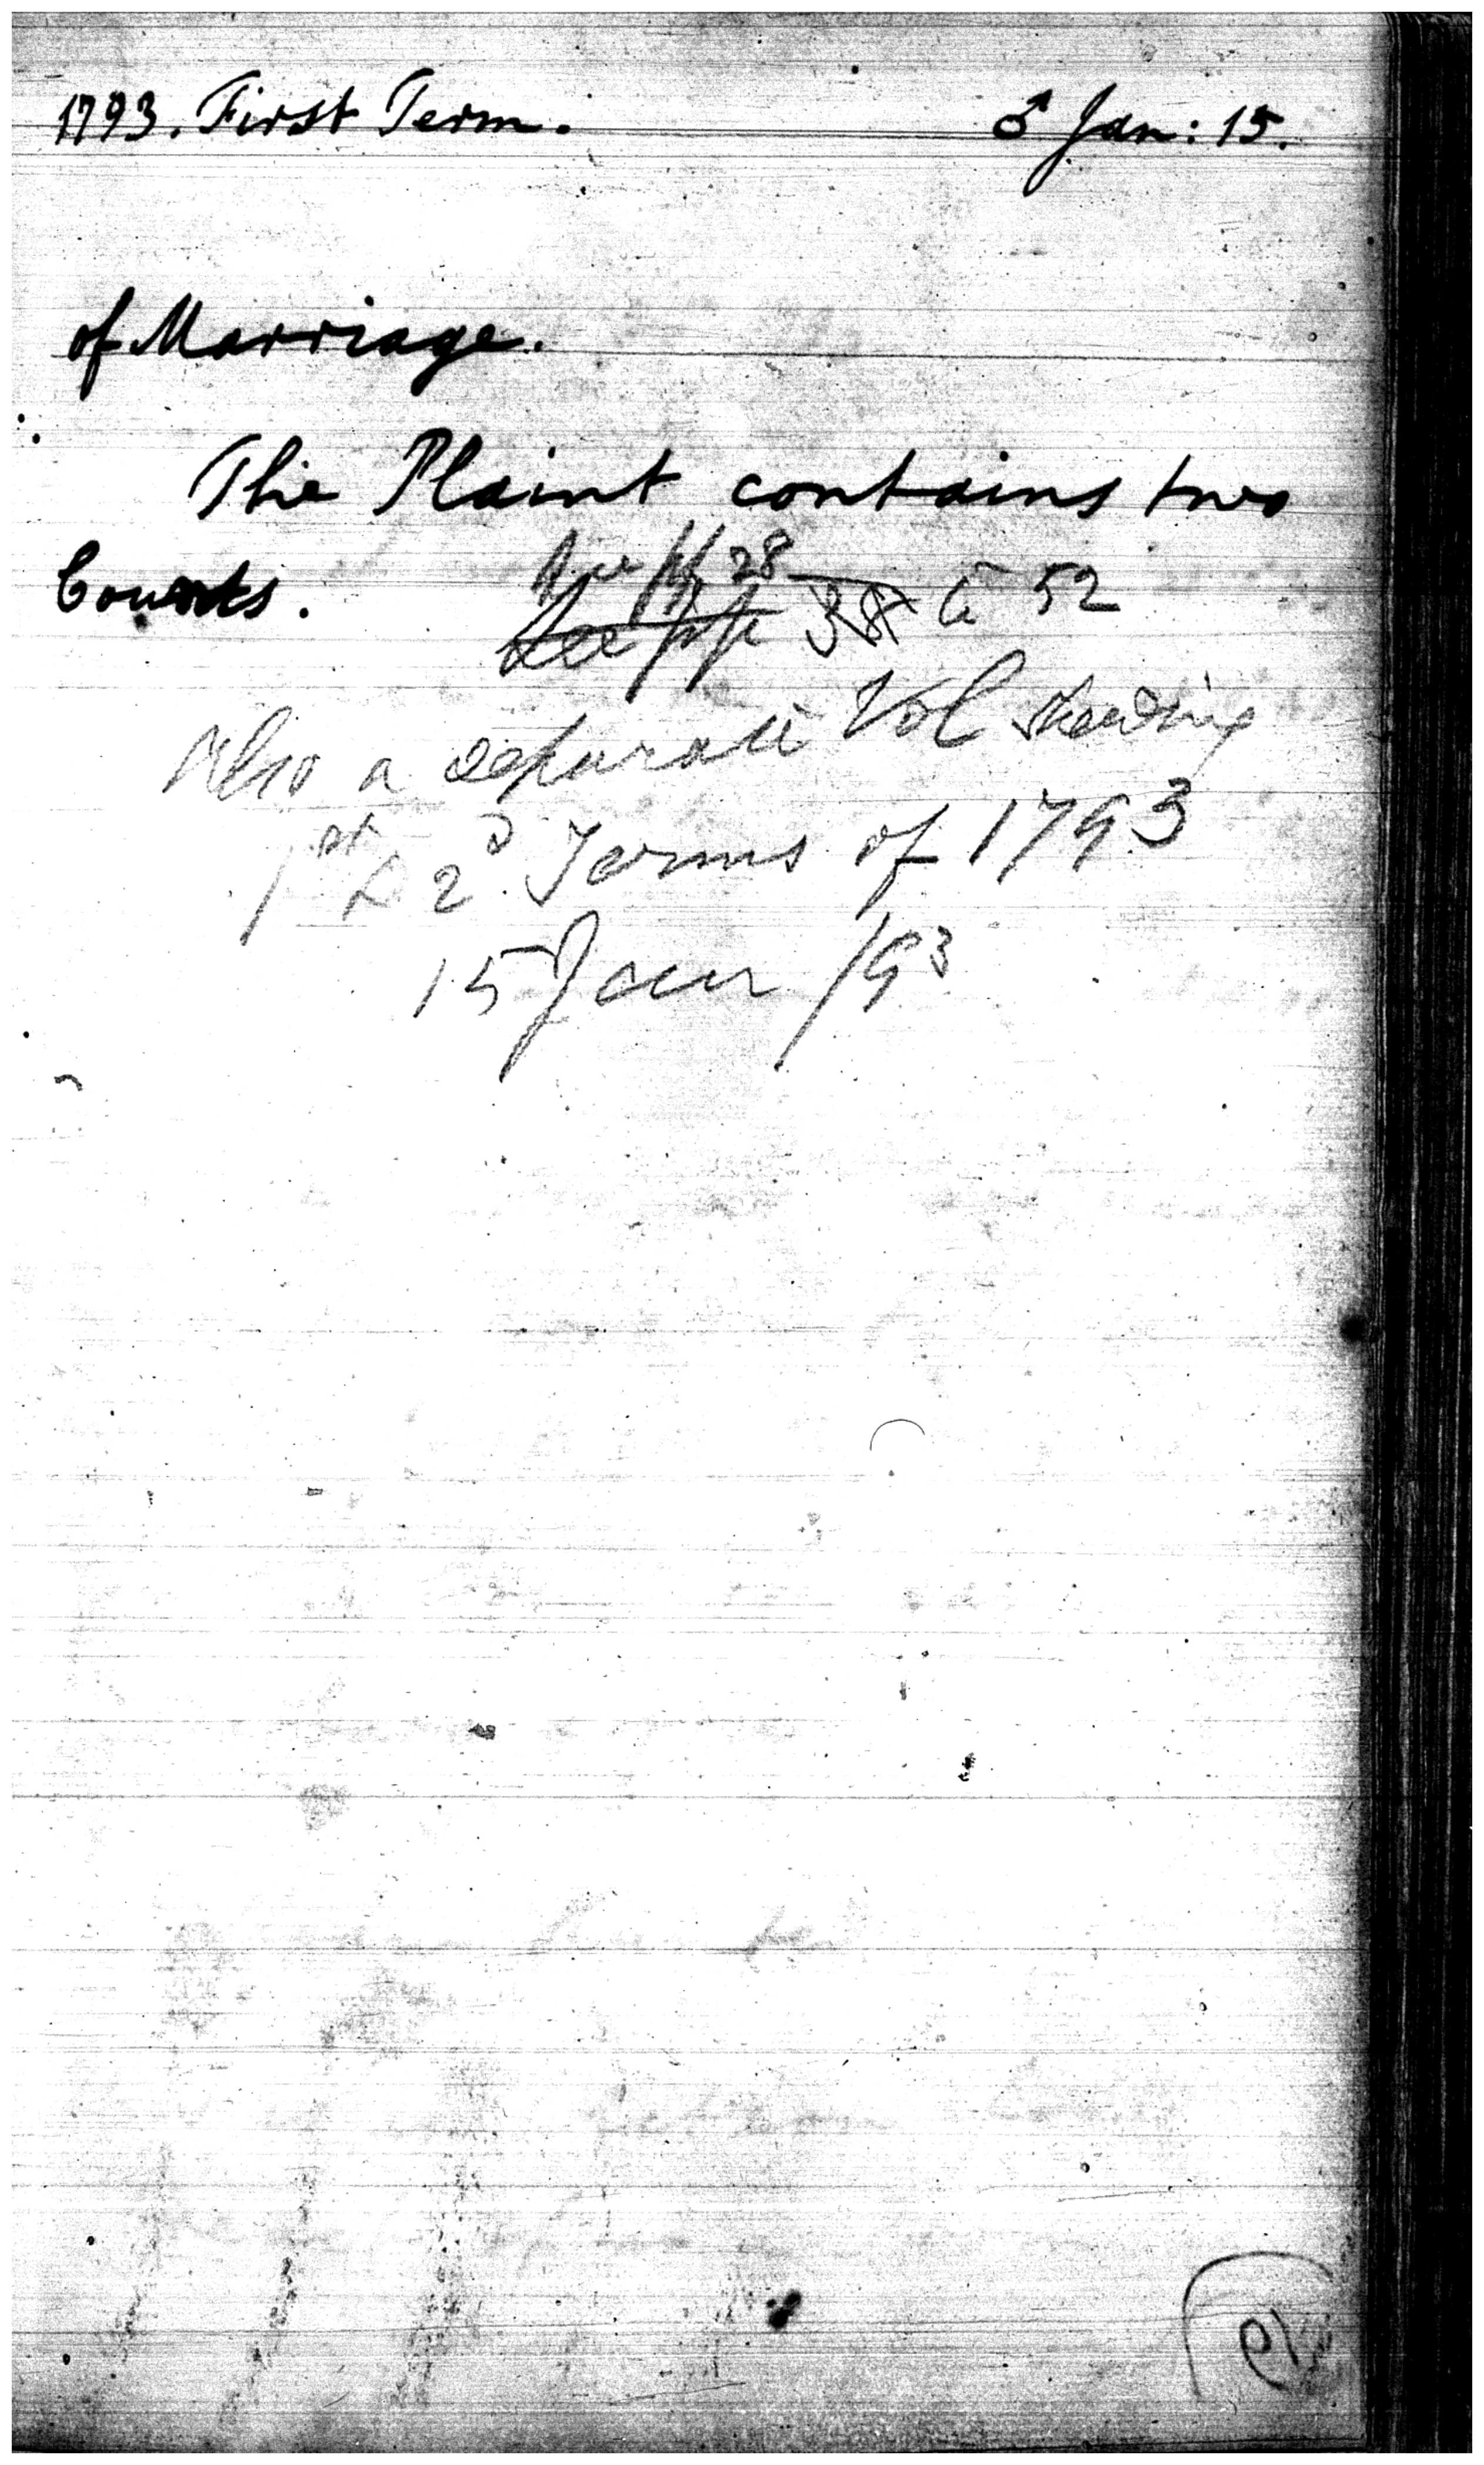 1793. First Term. ♂ Jan: 15.
of Marriage.
The Plaint contains two
Counts. See pp 28
See pp 38 to 52
Also a separate Vol shewing
1st & 2d Terms of 1793
15 Jan /93